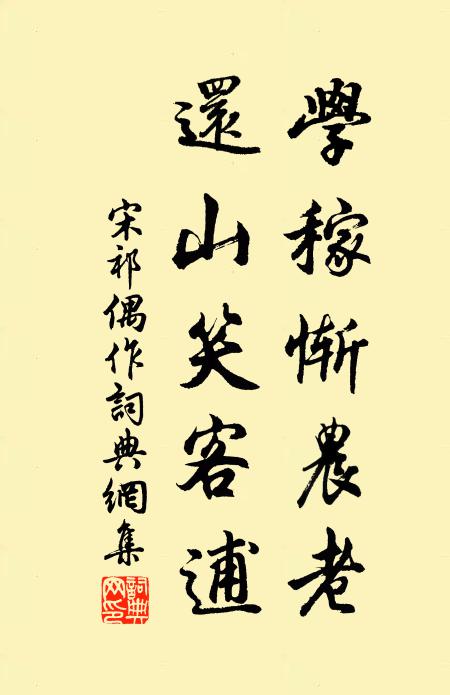 學稼慚農老
還山笑客逋
宋祁偶作詞典網集
詞典网印